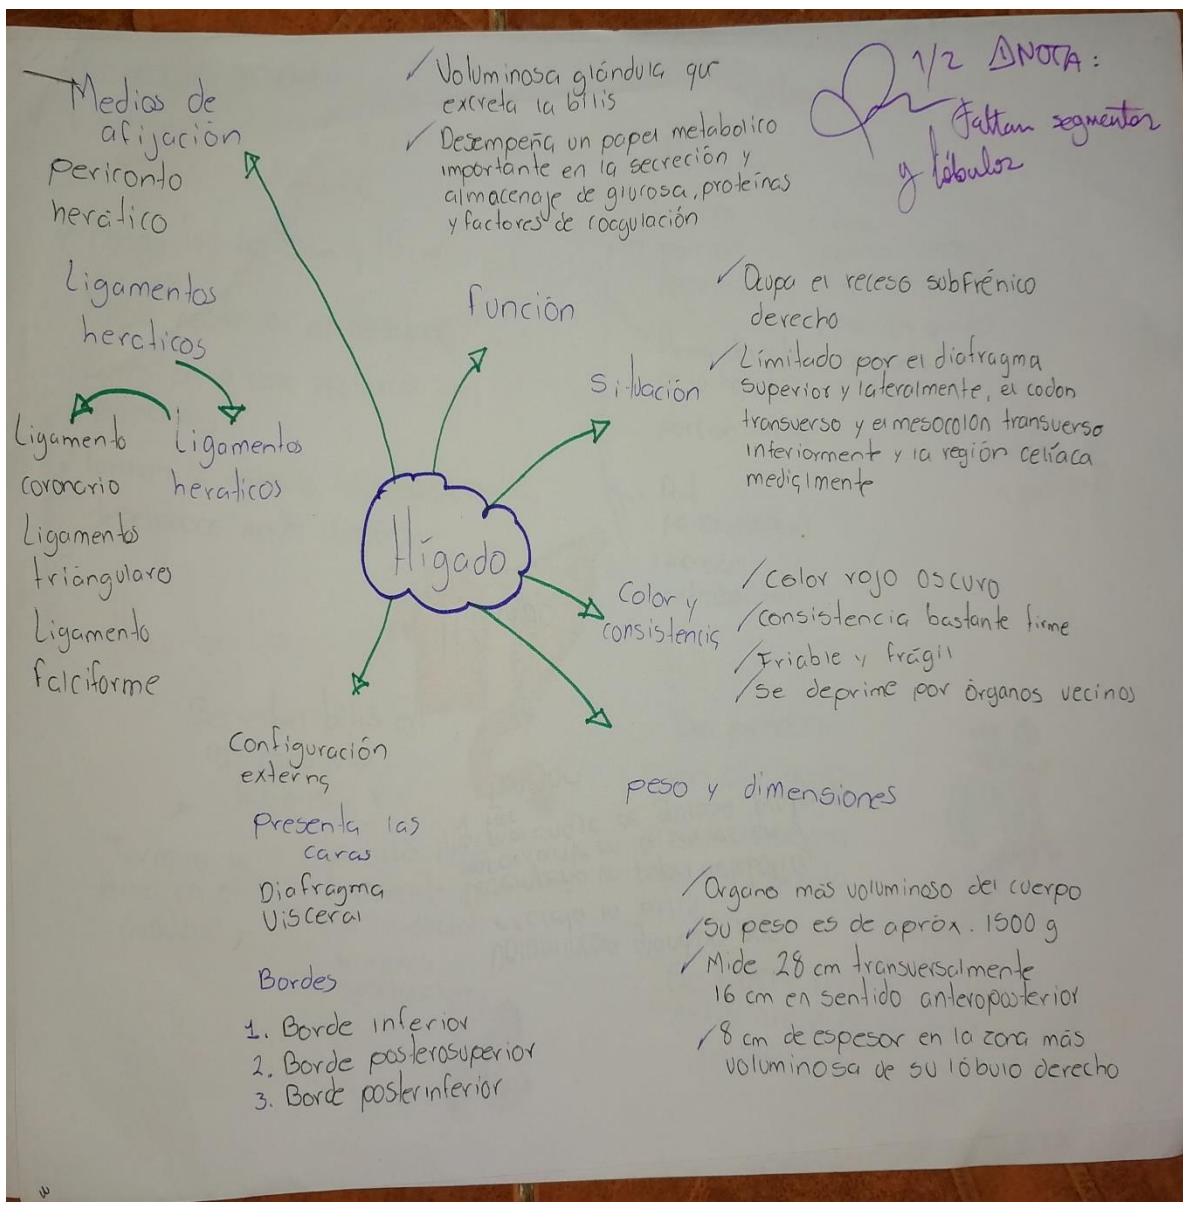 Medios de
afijación
Periconto
herático
Ligamentos
heraticos
Ligamento
coronario
Ligamentos
triángulares
Ligamento
falciforme
Ligamentos
heraticos
Voluminosa glándula que
excreta la bílis
Desempeña un papel metabolico
importante en la secreción y
almacenaje de glucosa, proteínas
y factores de coagulación
función
1/2 NOTA:
Faltan segmentos
y lóbulos
Situación
Ocupa el receso subfrénico
derecho
Limitado por el diafragma
superior y lateralmente, el codon
transverso y el mesocolon transverso
inferiormente y la región celíaca
medialmente
Hígado
Color y
consistencia
Color rojo oscuro
consistencia bastante firme
Friable y frágil
se deprime por órganos vecinos
Configuración
externa
Presenta las
caras
Diafragma
Visceral
Bordes
1. Borde inferior
2. Borde posterosuperior
3. Borde posterinferior
peso y dimensiones
Organo más voluminoso del cuerpo
Su peso es de apróx. 1500 g
Mide 28 cm transversalmente
16 cm en sentido anteroposterior
8 cm de espesor en la zona más
voluminosa de su lóbulo derecho